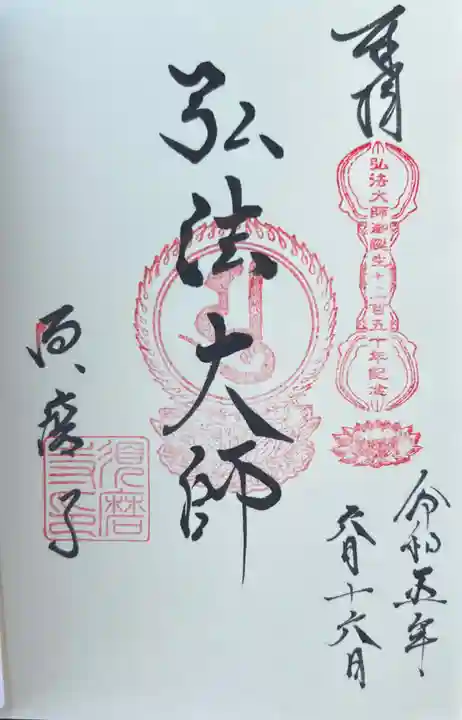 奉拝
弘法大師御誕生千二百五十年記念
令和五年
六月十六日
弘法大師
須磨寺
須磨寺